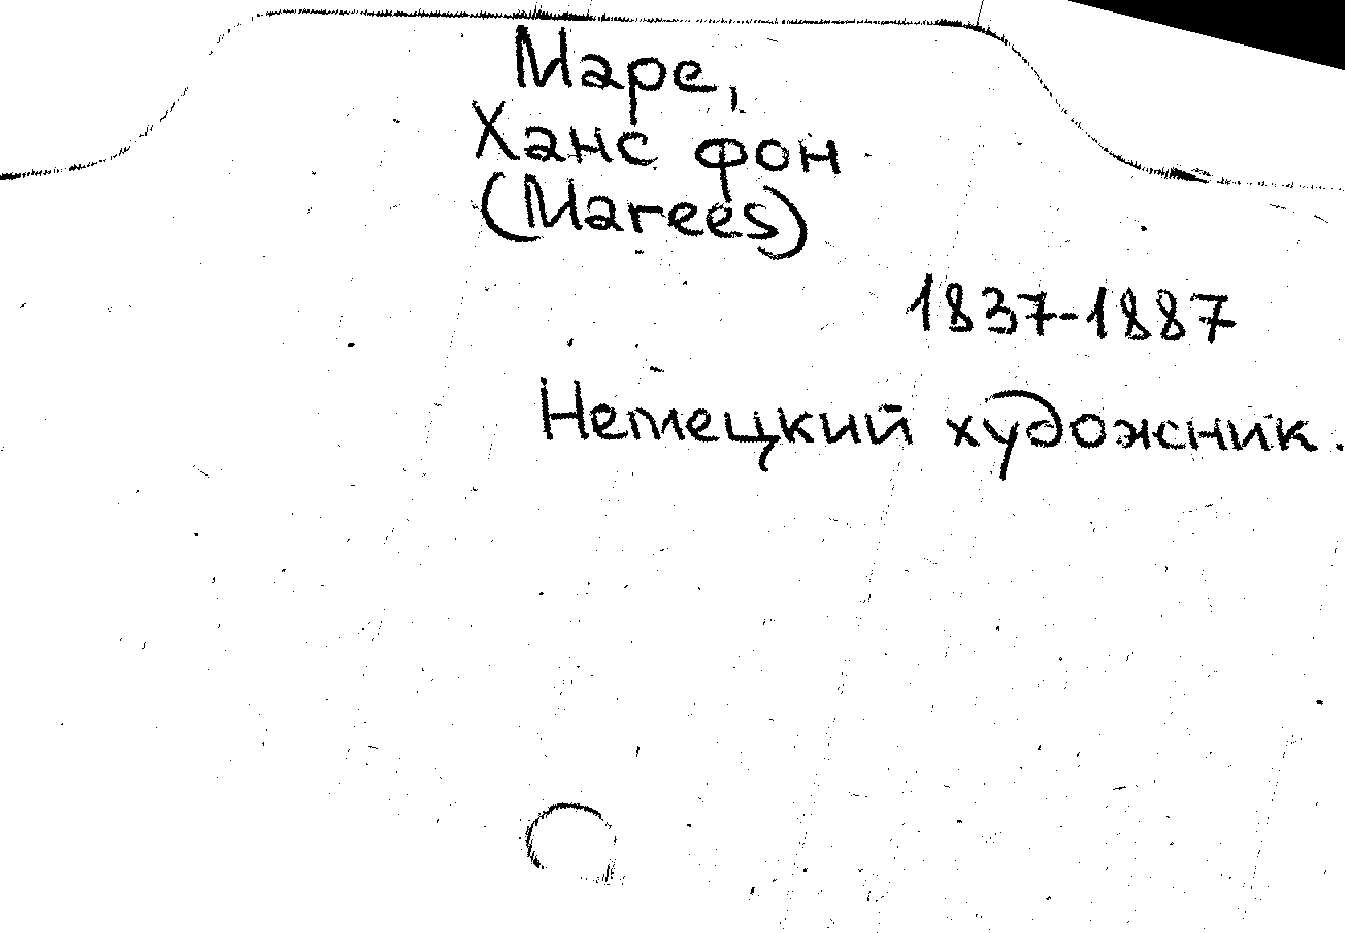 Маре,
Ханс фон
(Marees)
1837-1887
Немецкий художник.